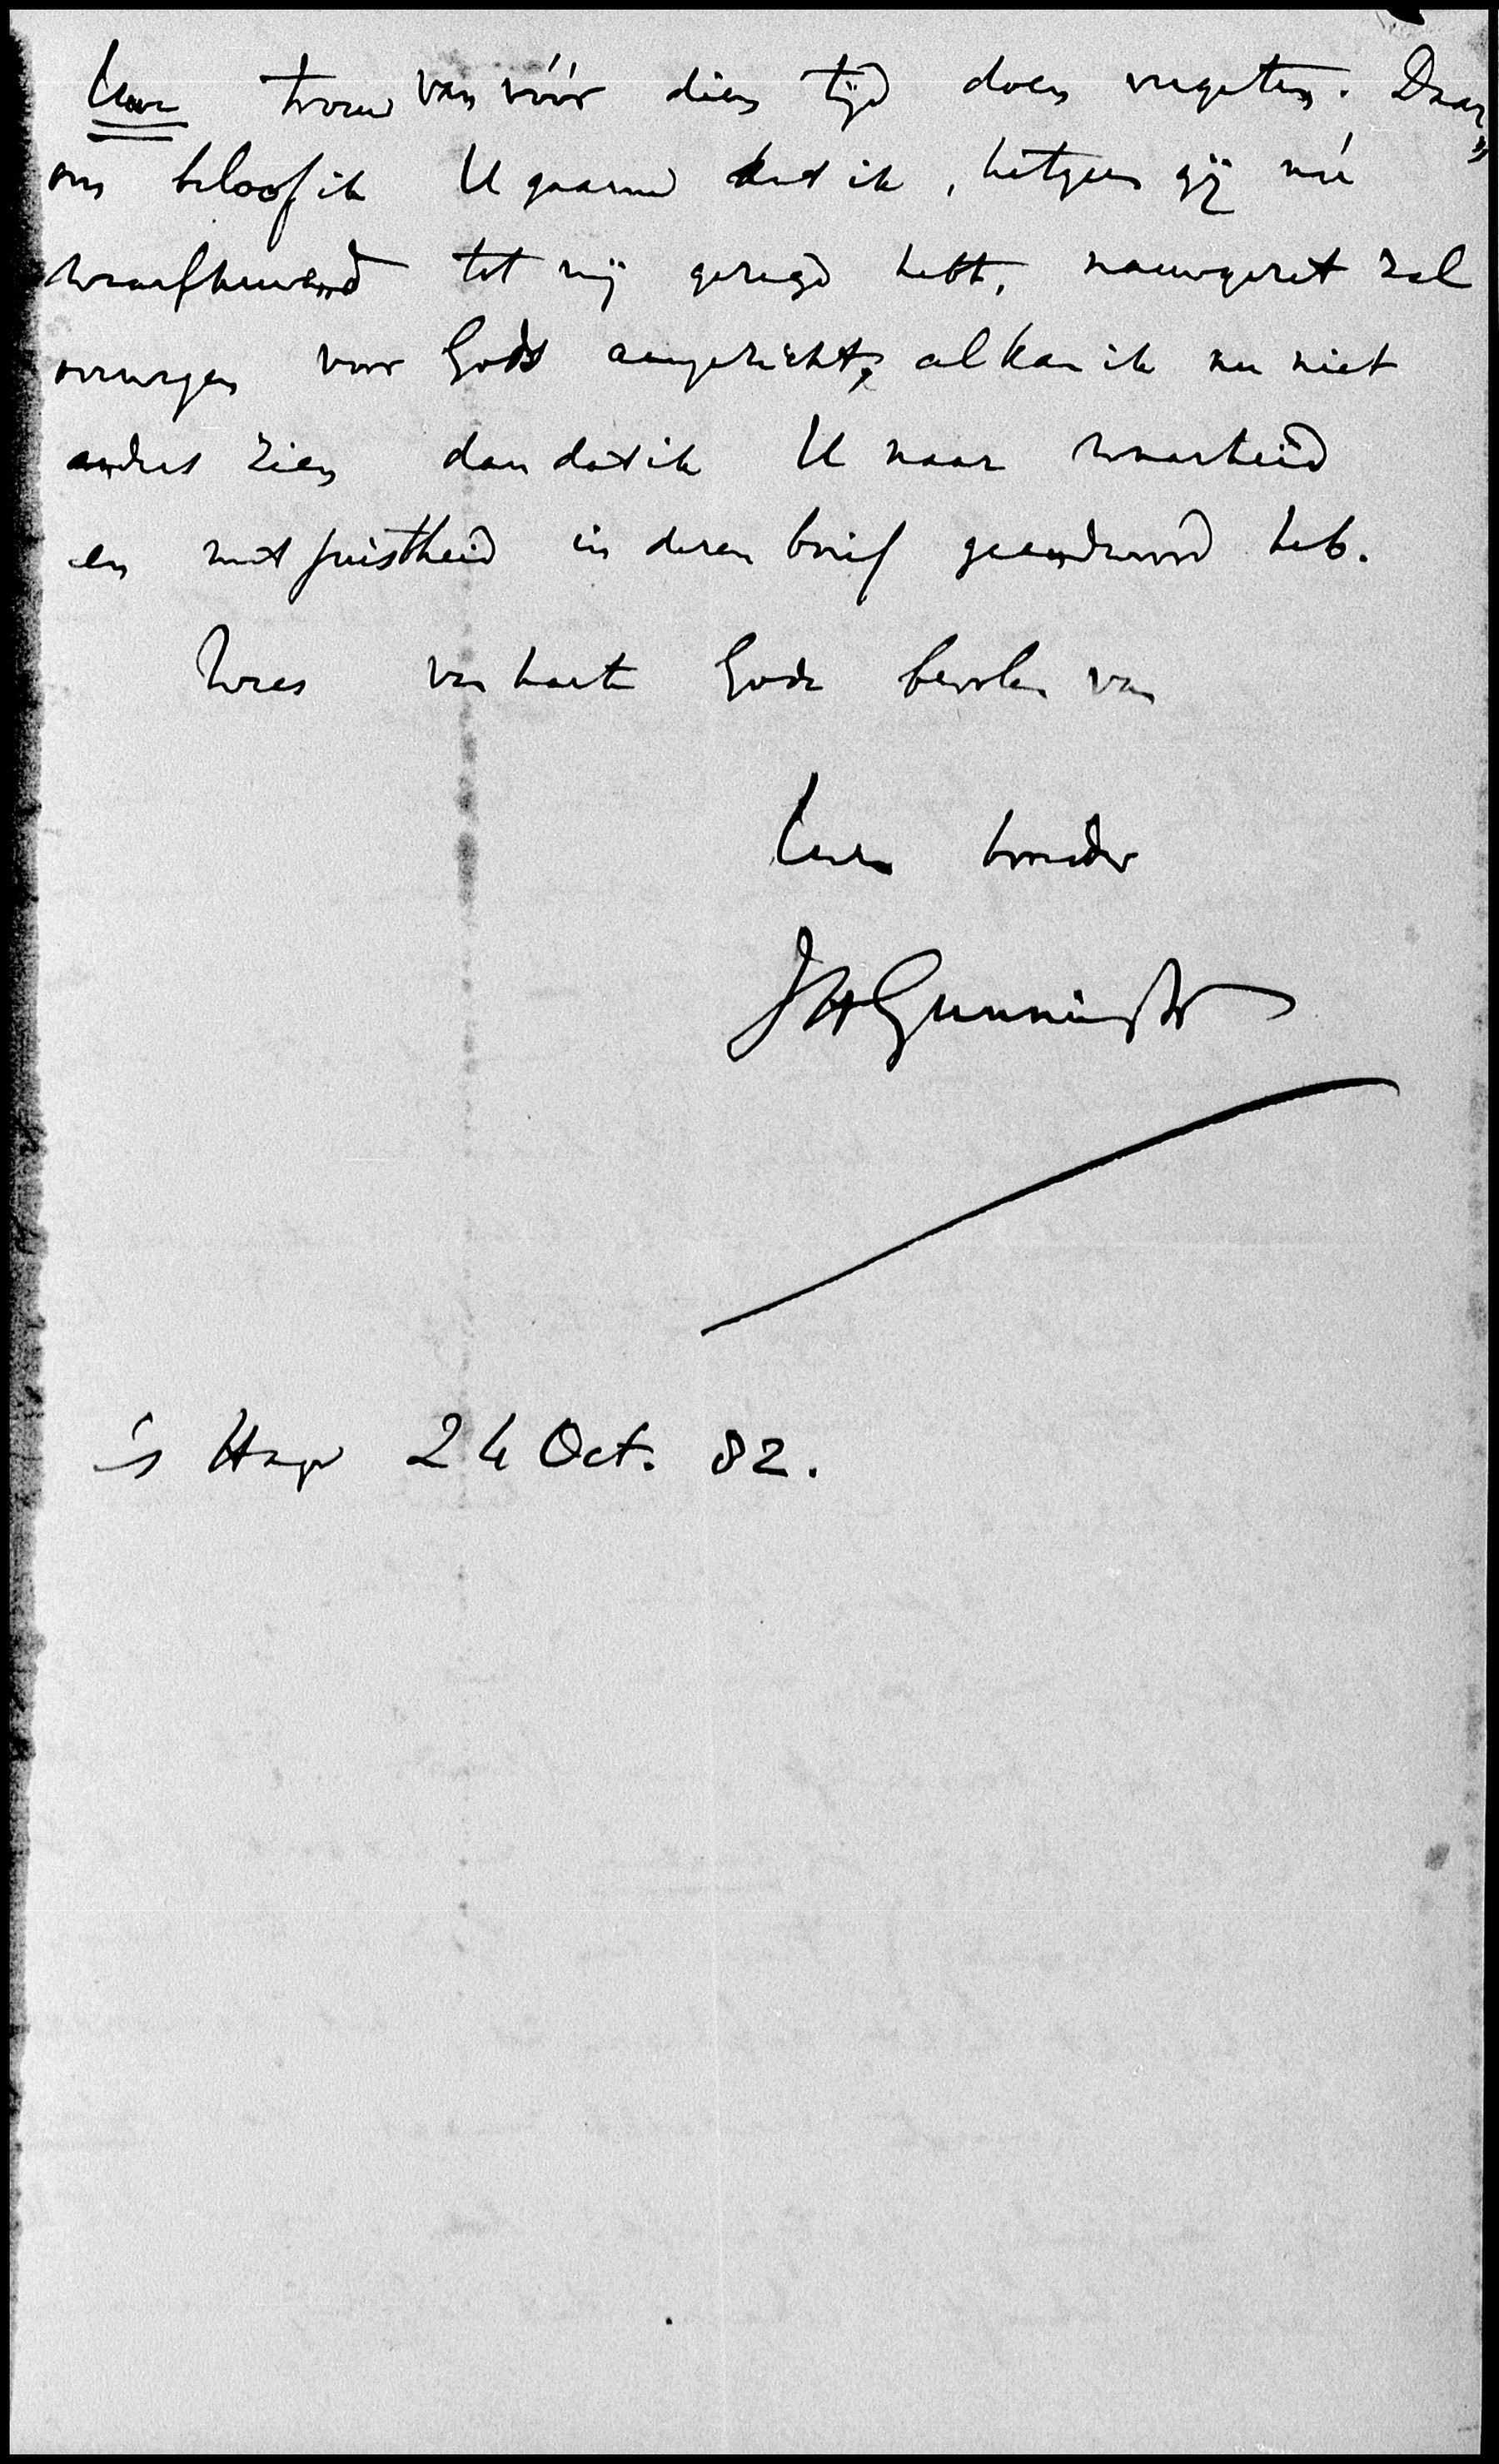 Uwe trouw van vóór dien tijd doen vergeten. Daar„
om beloof ik U gaarne dat ik, hetgeen gij nú
waarschuwend tot mij gezegd hebt, nauwgezet zal
overwegen voor Gods aangezicht, al kan ik nu niet
anders zien dan dat ik U naar waarheid
en met juistheid in dezen brief geantwoord heb.
Wees van harte Gode bevolen van
Uwen broeder
JHGunning Jr
's Hage 24 Oct. 82.